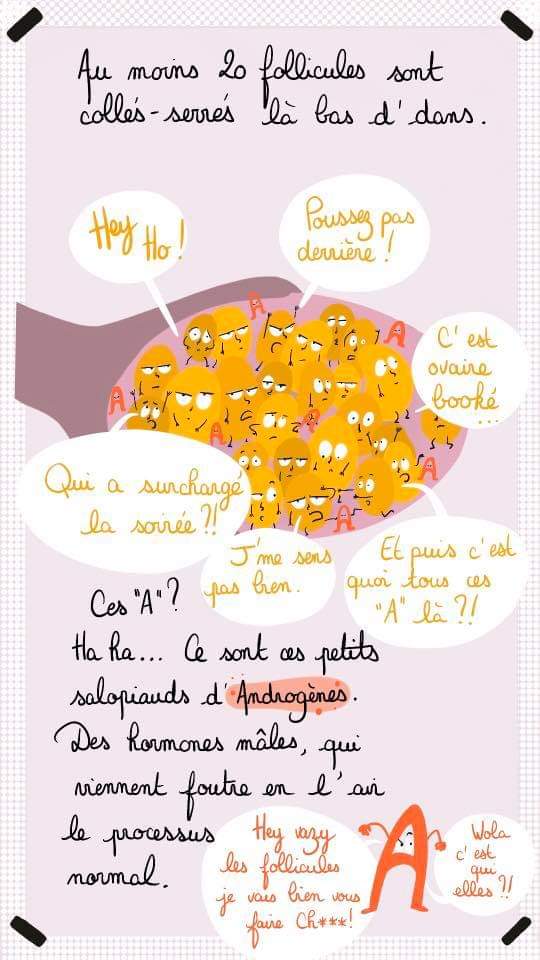 Au moins 20 follicules sont
collés-serrés là bas d'dans.
Hey
Ho !
Poussez pas
derrière !
C'est
ovaire
booké
...
Qui a surchargé
la soirée ?!
J'me sens
pas bien.
Et puis c'est
quoi tous ces
"A" là ?!
A
A
A
A
A
A
A
Ces "A" ?
Ha ha... Ce sont ces petits
salopiauds d'Androgènes.
Des hormones mâles, qui
viennent foutre en l'air
le processus
normal.
Hey vazy
les follicules
je vais bien vous
faire Ch***!
A
Wola
c'est
qui
elles ?!